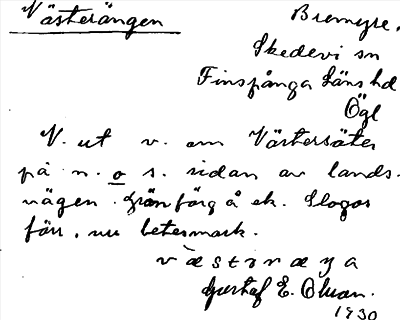 Västerängen
Bremyre,
Skedevi sn
Finspånga läns hd
Ögl
N. ut v. om Västersäter
på n. o s. sidan av lands-
vägen. Gränsförg å ek. Slogs
förr, nu betesmark.
västəræŋa
Gustaf E. Olson.
1930